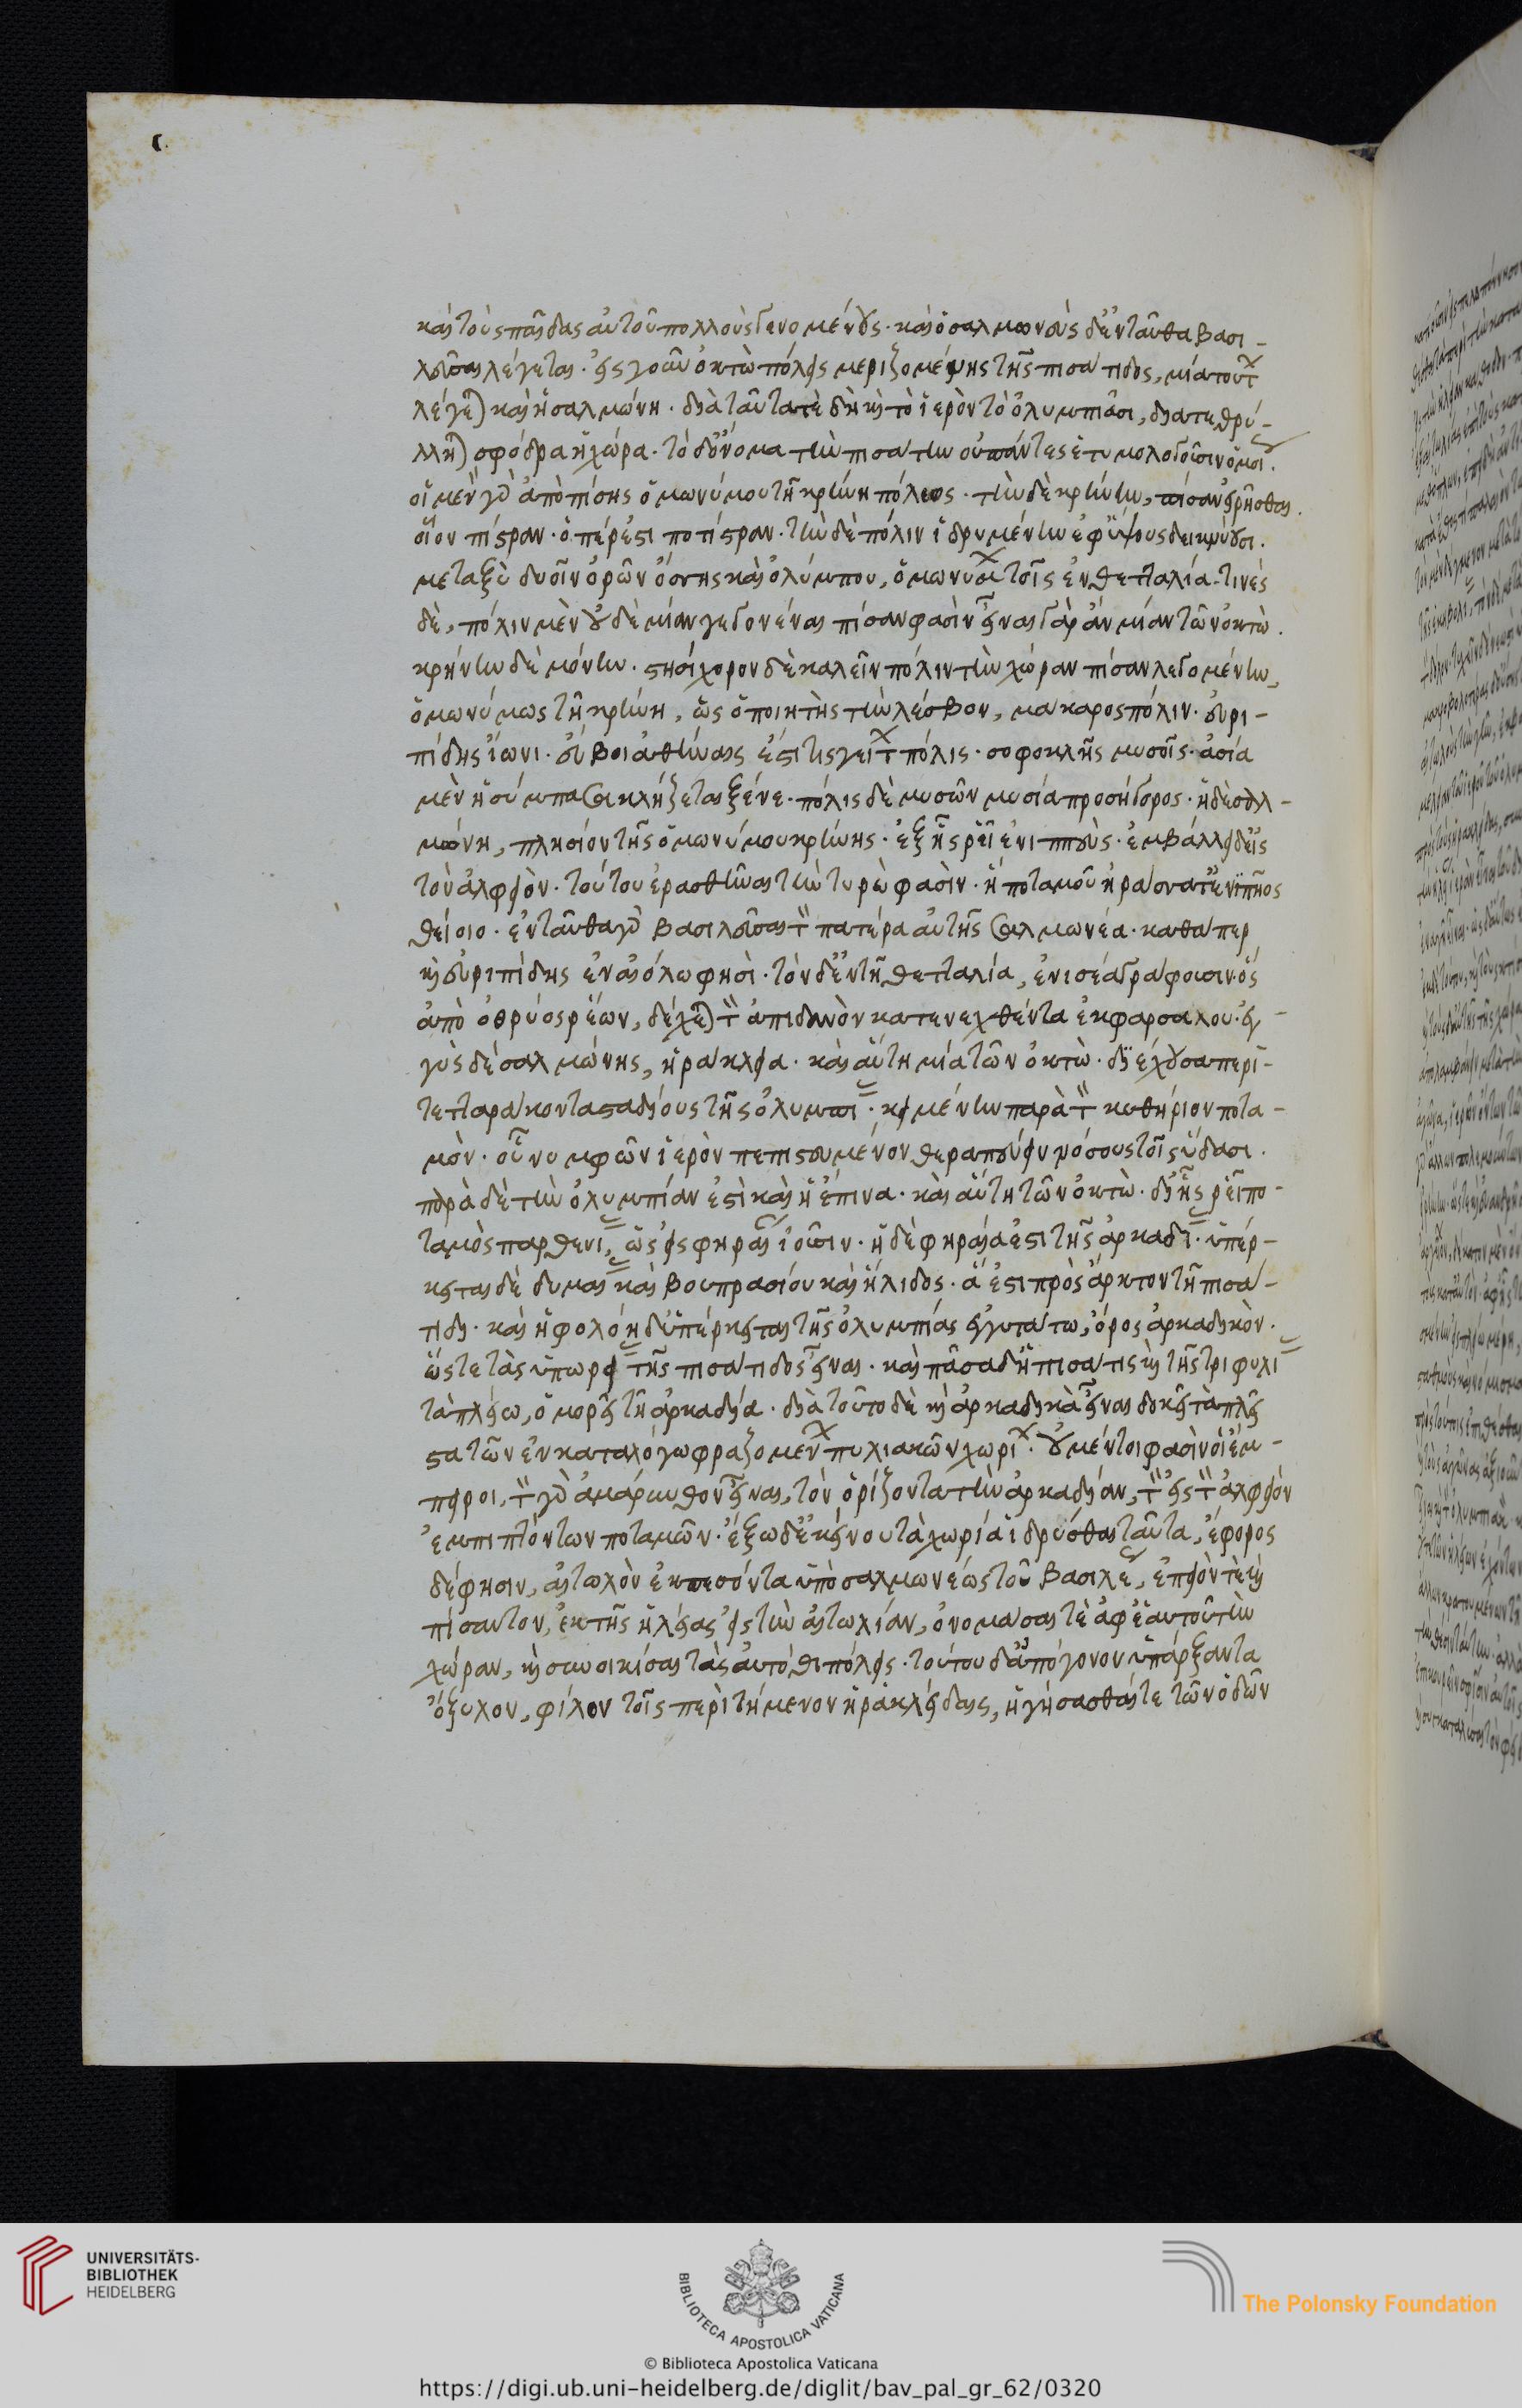 καὶ τοὺς παῖδας αὐτοῦ πολλοὺς γενομένους· καὶ ὁ σαλμωνεὺς δ' ἐνταῦθα βασι-
λεῦσαι λέγεται· εἰς γοῦν ὀκτὼ πόλεις μεριζομένης τῆς πισάτιδος, μία τούτ
λέγεται καὶ ἡ σαλμώνη· διὰ ταῦτα τὲ δὴ καὶ τὸ ἱερὸν τὸ ὀλυμπίασι, διατεθρύ-
λληται σφόδρα ἡ χώρα· τὸ δ' ὄνομα τὴν πισάτιν οὐ πάντες ἐτυμολογοῦσιν ὁμοί.
οἱ μὲν γὰρ ἀπὸ πίσης ὁμωνύμου τῆ κρήνη πόλεως· τὴν δὲ κρήνην, πίσαν εἰρῆσθαι.
οἷον πίστραν· ὅπερ ἐστι ποτίστραν· τὴν δὲ πόλιν ἱδρυμένην ἐφ' ὕψους δεικνύουσι.
μεταξὺ δυοῖν ὀρῶν ὄσσης καὶ ὀλύμπου, ὁμωνύ τοῖς ἐν θετταλία· τινὲς
δὲ, πόλιν μὲν οὐδὲ μίαν γεγονέναι πίσαν φασὶν εἶναι γὰρ ἂν μίαν τῶν ὀκτώ.
κρήνην δὲ μόνην· στησίχορον δὲ καλεῖν πόλιν τὴν χώραν πίσαν λεγομένην,
ὁμωνύμως τῆ κρήνη, ὡς ὁ ποιητὴς τὴν λέσβον, μάκαρος πόλιν· εὐρι-
πίδης ἴωνι· εὔβοι' ἀθήναις ἐστί τις γείτ πόλις· σοφοκλῆς μυσοῖς· ἀσία
μὲν ἡ σύμπασα κλήζεται ξένε· πόλις δὲ μυσῶν μυσία προσήγορος· ἡ δὲ σαλ-
μώνη, πλησίον τῆς ὁμωνύμου κρήνης· ἐξ ἧς ῥεῖ ἐνιπεὺς· ἐμβάλλει δ' εἰς
τὸν ἀλφειὸν· τούτου ἐρασθῆναι τὴν τυρὼ φασὶν· ἣ ποταμοῦ ἠράσσατ' ἐνιπῆος
θείοιο· ἐνταῦθα γὰρ βασιλεῦσαι τὸν πατέρα αὐτῆς σαλμωνέα· καθάπερ
καὶ εὐριπίδης ἐν αἰόλω φησὶ· τὸν δ' ἐν τῆ θετταλία, ἐνισέα γράφουσιν· ὃς
ἀπὸ ὀθρύος ῥέων, δέχεται τὸν ἀπιδανὸν κατενεχθέντα ἐκ φαρσάλου· ἐγ-
γὺς δὲ σαλμώνης, ἡράκλεια· καὶ αὕτη μία τῶν ὀκτὼ· διέχουσα περὶ-
τετταράκοντα σταδίους τῆς ὀλυμπί· κειμένην παρὰ τὸν κυθήριον ποτα-
μὸν· οὗ νυμφῶν ἱερὸν πεπιστευμένον θεραπεύειν νόσους τοῖς ὕδασι.
παρὰ δὲ τὴν ὀλυμπίαν ἐστὶ καὶ ἡ ἔπινα· καὶ αὕτη τῶν ὀκτὼ· δι' ἧς ῥεῖ πο-
ταμὸς παρθενί, ὡς εἰς φηραί ἰοῦσιν· ἡ δὲ φηραία ἐστι τῆς ἀρκαδί· ὑπέρ-
κειται δὲ δυμαί καὶ βουπρασίου καὶ ἤλιδος· ἅ ἐστι πρὸς ἄρκτον τῆ πισά-
τιδι· καὶ ἡ φολόη δ' ὑπέρκειται τῆς ὀλυμπίας ἐγγυτάτω, ὄρος ἀρκαδικὸν.
ὥστε τὰς ὑπωρεί τῆς πισάτιδος εἶναι· καὶ πᾶσα δ' ἡ πισάτις καὶ τῆς τριφυλί
τὰ πλείω, ὁμορεῖ τῆ ἀρκαδία· διὰ τοῦτο δὲ καὶ ἀρκαδικὰ εἶναι δοκεῖ τὰ πλεῖ
στα τῶν ἐν καταλόγω φραζομέν πυλιακῶν χωρί· οὐ μέντοι φασὶν οἱ ἔμ-
πειροι, τὸν γὰρ ἀμάρυνθον εἶναι, τὸν ὁρίζοντα τὴν ἀρκαδίαν, τῶν εἰς τὸν ἀλφειὸν
ἐμπιπτόντων ποταμῶν· ἔξω δ' ἐκείνου τὰ χωρία ἱδρύσθαι ταῦτα, ἔφορος
δέ φησιν, αἰτωλὸν ἐκπεσόντα ὑπὸ σαλμωνέως τοῦ βασιλέ, ἐπειὸν τὲ καὶ
πισαυτον, ἐκ τῆς ἠλείας εἰς τὴν αἰτωλίαν, ὀνομάσαι τὲ ἀφ' ἑαυτοῦ τὴν
χώραν, καὶ συνοικίσαι τὰς αὐτόθι πόλεις· τούτου δ' ἀπόγονον ὑπάρξαντα
ὄξυλον, φίλον τοῖς περὶ τήμενον ἡρακλείδαις, ἡγήσασθαί τε τῶν ὁδῶν
UNIVERSITÄTS-
BIBLIOTHEK
HEIDELBERG
BIBLIOTECA APOSTOLICA VATICANA
© Biblioteca Apostolica Vaticana
The Polonsky Foundation
https://digi.ub.uni-heidelberg.de/diglit/bav_pal_gr_62/0320